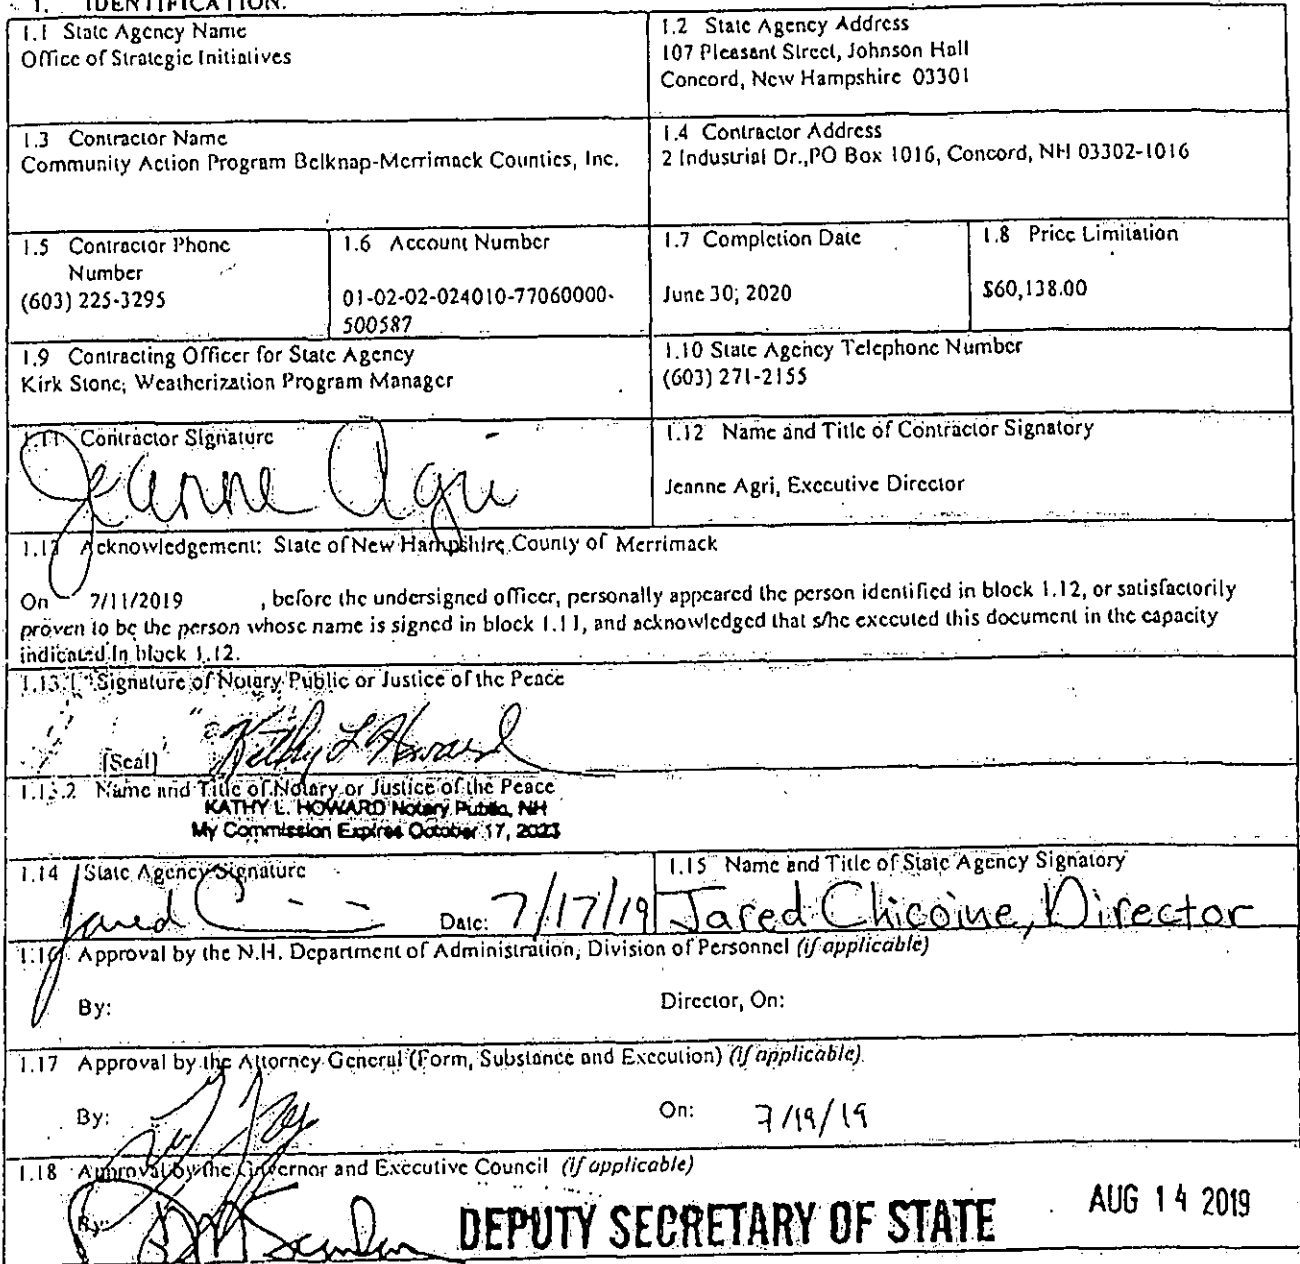 1. IDENTIFICATION.
1.1 State Agency Name
Office of Strategic Initiatives
1.2 State Agency Address
107 Pleasant Street, Johnson Hall
Concord, New Hampshire 03301
1.3 Contractor Name
Community Action Program Belknap-Merrimack Counties, Inc.
1.4 Contractor Address
2 Industrial Dr.,PO Box 1016, Concord, NH 03302-1016
1.5 Contractor Phone
Number
(603) 225-3295
1.6 Account Number
01-02-02-024010-77060000-
500587
1.7 Completion Date
June 30, 2020
1.8 Price Limitation
$60,138.00
1.9 Contracting Officer for State Agency
Kirk Stone, Weatherization Program Manager
1.10 State Agency Telephone Number
(603) 271-2155
1.11 Contractor Signature
Jeanne Agri
1.12 Name and Title of Contractor Signatory
Jeanne Agri, Executive Director
1.13 Acknowledgement: State of New Hampshire, County of Merrimack
On 7/11/2019 , before the undersigned officer, personally appeared the person identified in block 1.12, or satisfactorily
proven to be the person whose name is signed in block 1.11, and acknowledged that s/he executed this document in the capacity
indicated in block 1.12.
1.13.1 Signature of Notary Public or Justice of the Peace
Kathy L Howard
[Seal]
1.13.2 Name and Title of Notary or Justice of the Peace
KATHY L. HOWARD Notary Public, NH
My Commission Expires October 17, 2023
1.14 State Agency Signature
Jared C
Date: 7/17/19
1.15 Name and Title of State Agency Signatory
Jared Chicoine, Director
1.16 Approval by the N.H. Department of Administration, Division of Personnel (if applicable)
By: Director, On:
1.17 Approval by the Attorney General (Form, Substance and Execution) (if applicable)
By: On: 7/19/19
1.18 Approval by the Governor and Executive Council (if applicable)
By: DEPUTY SECRETARY OF STATE AUG 14 2019